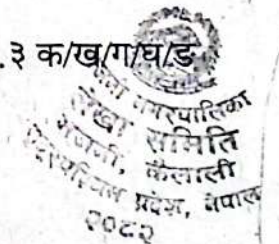 .३ क/ख/ग/घ/ङ
नगरपालिका
लेखा समिति
भजनी, कैलाली
सुदूरपश्चिम प्रदेश, नेपाल
२०८२